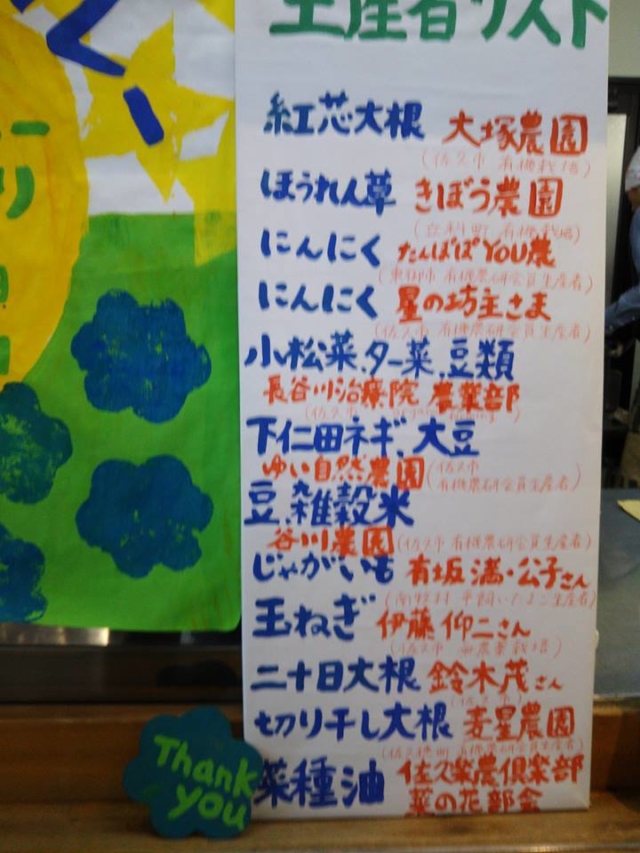 生産者リスト
紅芯大根 大塚農園
(佐久市 有機栽培)
ほうれん草 きぼう農園
(立科町 有機栽培)
にんにく たんぽぽYOU農
(東御市 有機農研会員生産者)
にんにく 星の坊主さま
(佐久市 有機農研会員生産者)
小松菜、ター菜、豆類
長谷川治療院 農業部
(佐久市
下仁田ネギ、大豆
ゆい自然農園(佐久市
有機農研会員生産者)
豆、雑穀米
谷川農園(佐久市 有機農研会員生産者)
じゃがいも 有坂満・公子さん
(南牧村 平飼いたまご生産者)
玉ねぎ 伊藤仰二さん
(佐久市 無農薬栽培)
二十日大根 鈴木茂さん
(佐久市)
切り干し大根 麦星農園
(佐久穂町 有機農研会員生産者)
菜種油 佐久楽農倶楽部
菜の花部会
Thank
you